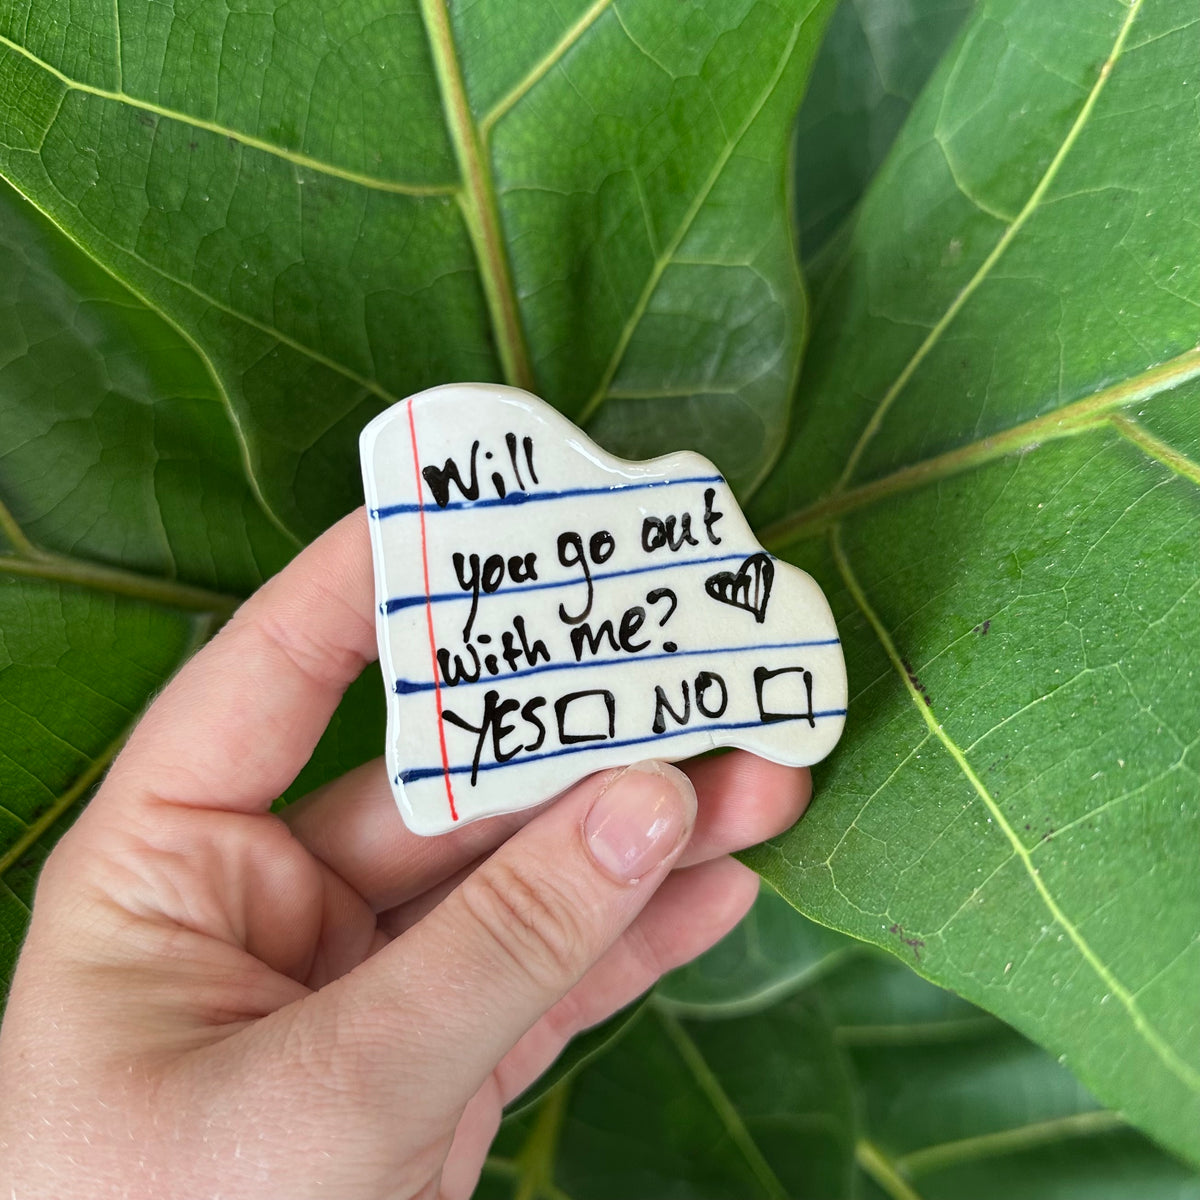 Will
you go out
with me?
YES NO